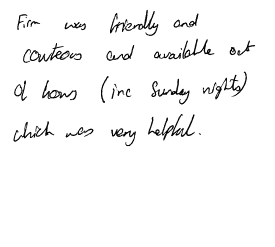 Firm was friendly and
courteous and available out
of hours (inc Sunday nights)
which was very helpful.